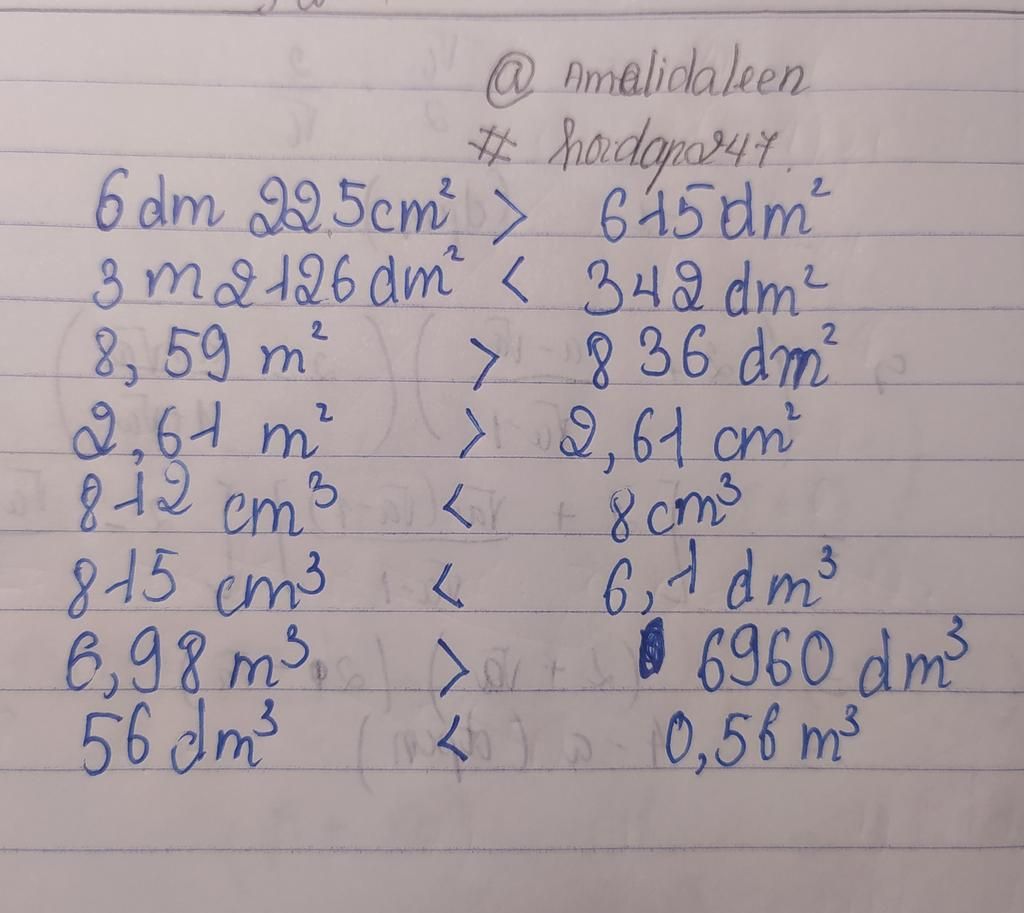 @ Amalidaleen
# hoidap247.
6 dm 225cm² > 615dm²
3 m 2126 dm² < 342 dm²
8,59 m² > 836 dm²
2,61 m² > 2,61 cm²
812 cm³ < 8cm³
815 cm³ < 6,1 dm³
6,98 m³ > 6960 dm³
56 dm³ < 0,56 m³